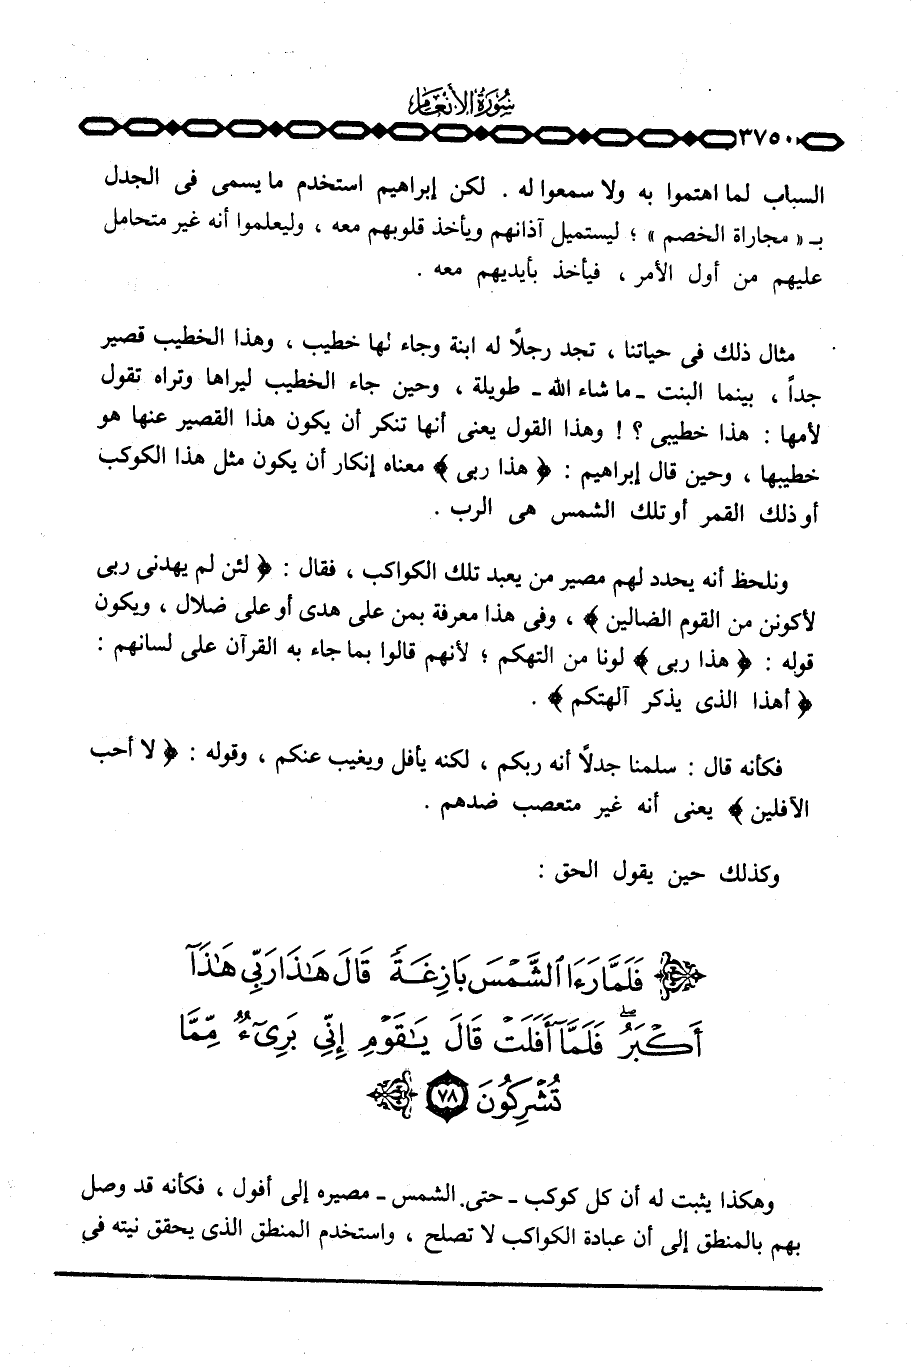 سُورَةُ الأَنْعَام
٣٧٥٠
السباب لما اهتموا به ولا سمعوا له . لكن إبراهيم استخدم ما يسمى فى الجدل
بـ « مجاراة الخصم » ؛ ليستميل آذانهم ويأخذ قلوبهم معه ، وليعلموا أنه غير متحامل
عليهم من أول الأمر ، فيأخذ بأيديهم معه .
مثال ذلك فى حياتنا ، تجد رجلاً له ابنة وجاء لها خطيب ، وهذا الخطيب قصير
جداً ، بينما البنت ـ ما شاء الله ـ طويلة ، وحين جاء الخطيب ليراها وتراه تقول
لأمها : هذا خطيبى ؟ ! وهذا القول يعنى أنها تنكر أن يكون هذا القصير عنها هو
خطيبها ، وحين قال إبراهيم : ﴿ هذا ربى ﴾ معناه إنكار أن يكون مثل هذا الكوكب
أو ذلك القمر أو تلك الشمس هى الرب .
ونلحظ أنه يحدد لهم مصير من يعبد تلك الكواكب ، فقال : ﴿ لئن لم يهدنى ربى
لأكونن من القوم الضالين ﴾ ، وفى هذا معرفة بمن على هدى أو على ضلال ، ويكون
قوله : ﴿ هذا ربى ﴾ لونا من التهكم ؛ لأنهم قالوا بما جاء به القرآن على لسانهم :
﴿ أهذا الذى يذكر آلهتكم ﴾ .
فكأنه قال : سلمنا جدلاً أنه ربكم ، لكنه يأفل ويغيب عنكم ، وقوله : ﴿ لا أحب
الآفلين ﴾ يعنى أنه غير متعصب ضدهم .
وكذلك حين يقول الحق :
﴿ فَلَمَّا رَءَا ٱلشَّمْسَ بَازِغَةً قَالَ هَٰذَا رَبِّى هَٰذَآ
أَكْبَرُ ۖ فَلَمَّآ أَفَلَتْ قَالَ يَٰقَوْمِ إِنِّى بَرِىٓءٌ مِّمَّا
تُشْرِكُونَ ٧٨ ﴾
وهكذا يثبت له أن كل كوكب ـ حتى الشمس ـ مصيره إلى أفول ، فكأنه قد وصل
بهم بالمنطق إلى أن عبادة الكواكب لا تصلح ، واستخدم المنطق الذى يحقق نيته فى